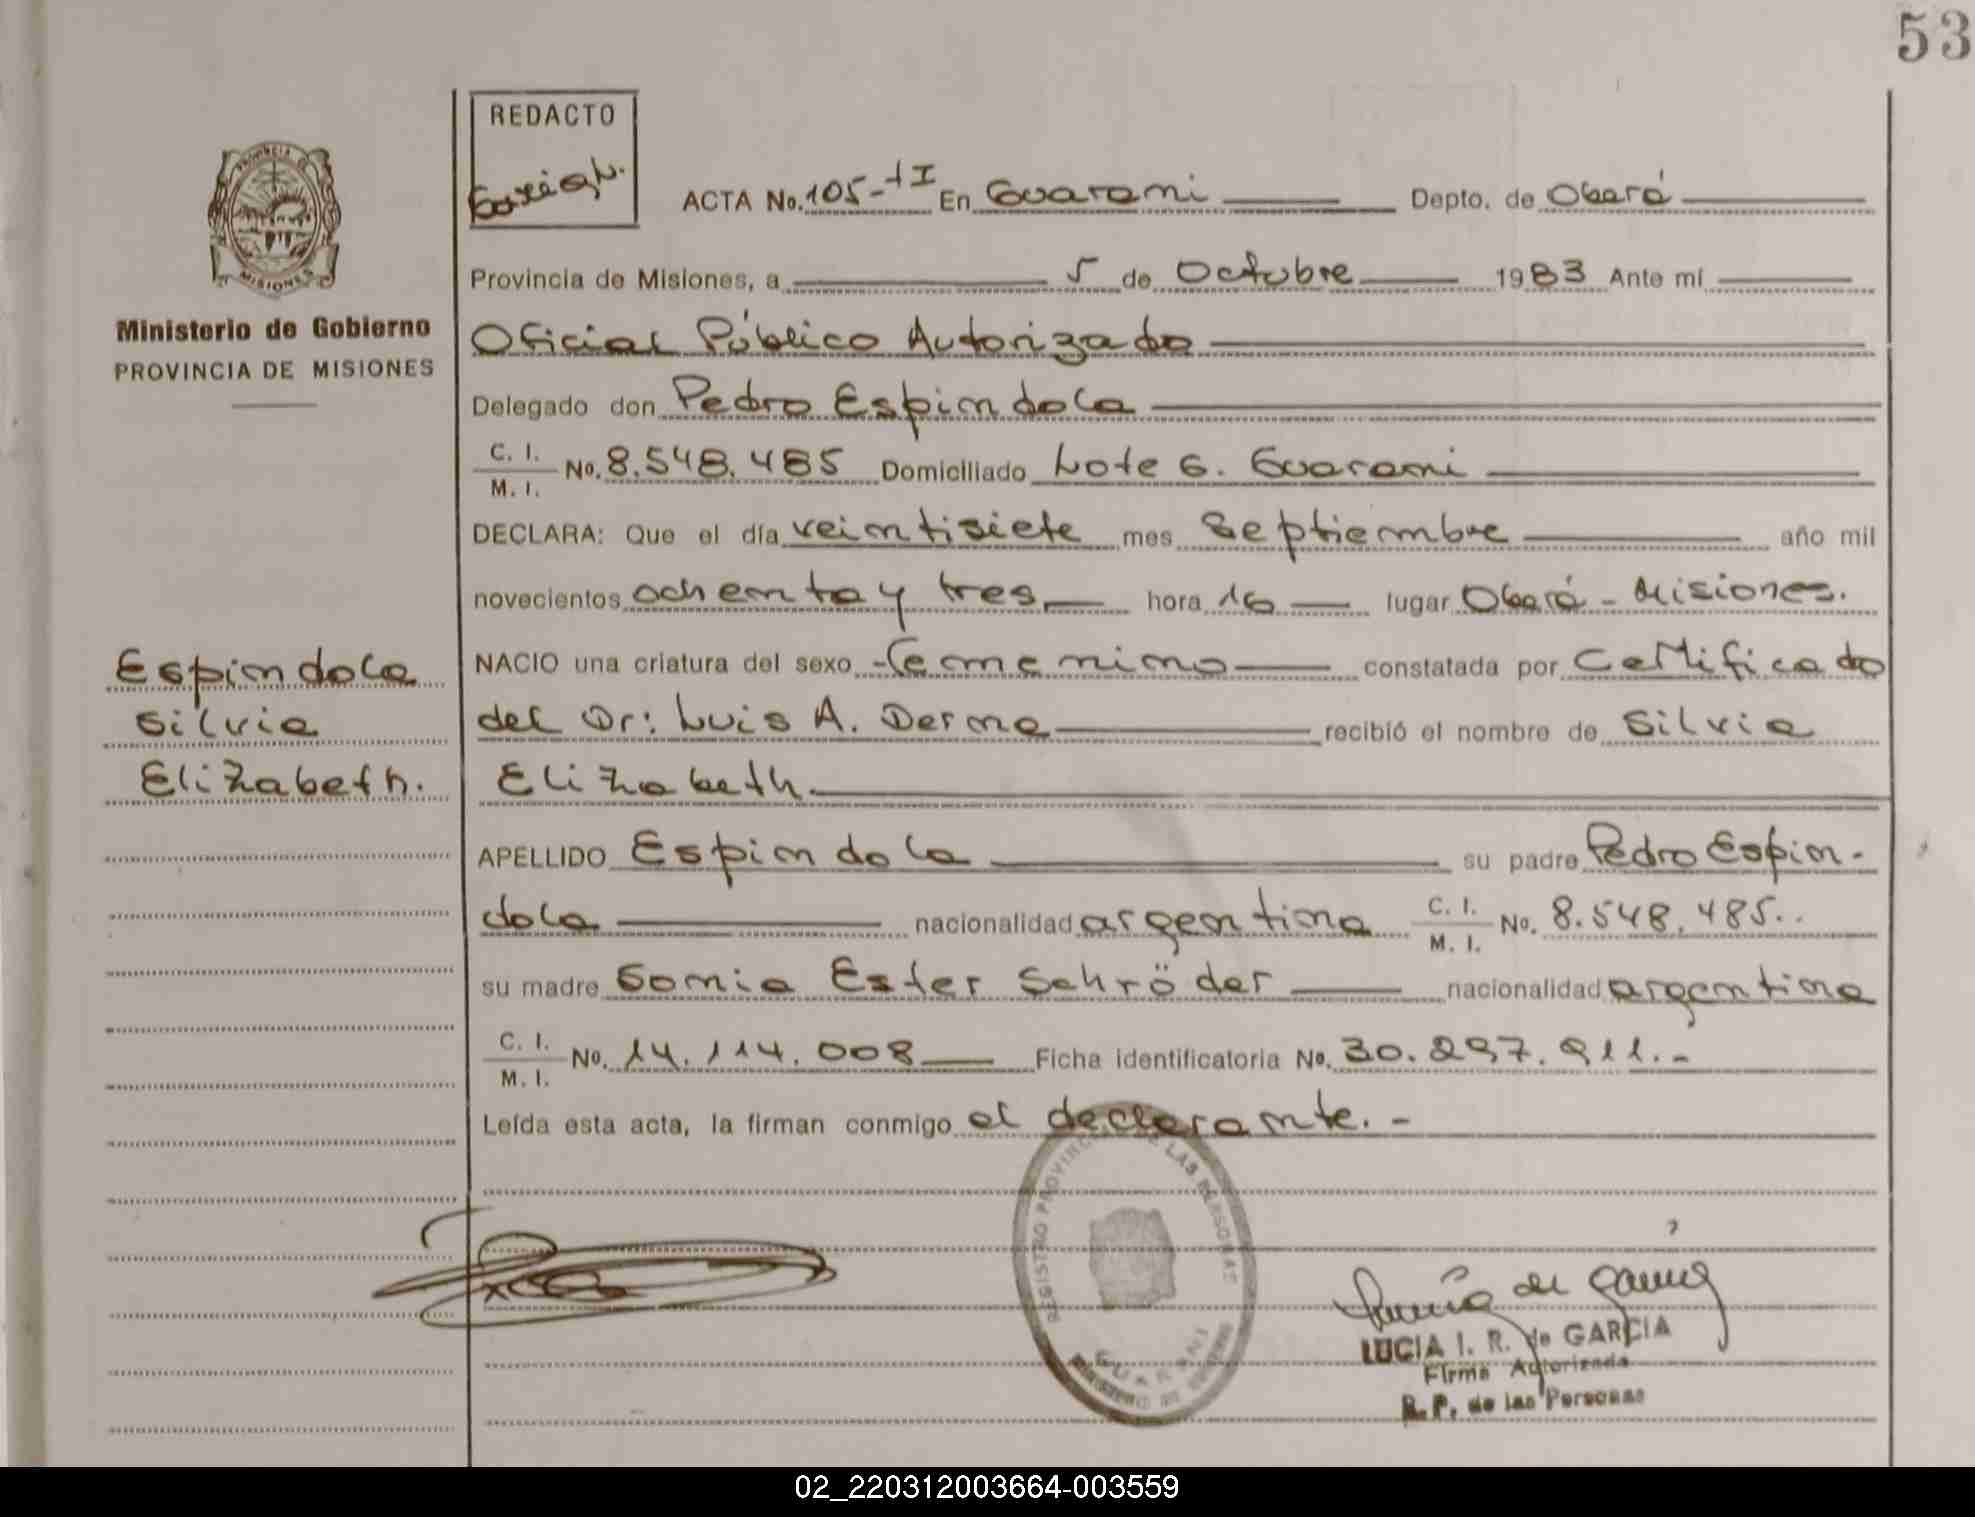 53
REDACTO
PROVINCIA DE
MISIONES
Ministerio de Gobierno
PROVINCIA DE MISIONES
ACTA No. 105-tI En Guarani Depto. de Oberá
Provincia de Misiones, a 5 de Octubre 1983 Ante mí
Oficial Público Autorizado
Delegado don Pedro Espindola
C. I. / M. I. No. 8.548.485 Domiciliado Lote 6. Guarani
DECLARA: Que el día veintisiete mes Septiembre año mil
novecientos ochenta y tres hora 16 lugar Oberá - Misiones.
Espindola
Silvia
Elizabeth.
NACIO una criatura del sexo femenino constatada por Certificado
del Dr: Luis A. Derna recibió el nombre de Silvia
Elizabeth.
APELLIDO Espindola su padre Pedro Espin-
dola nacionalidad argentina C. I. / M. I. No. 8.548.485..
su madre Sonia Ester Schröder nacionalidad argentina
C. I. / M. I. No. 14.114.008 Ficha identificatoria No. 30.297.911.-
Leída esta acta, la firman conmigo el declarante.-
REGISTRO PROVINCIAL DE LAS PERSONAS
GUARANI
MINISTERIO DE GOBIERNO
LUCIA I. R. de GARCIA
Firma Autorizada
R. P. de las Personas
02_220312003664-003559